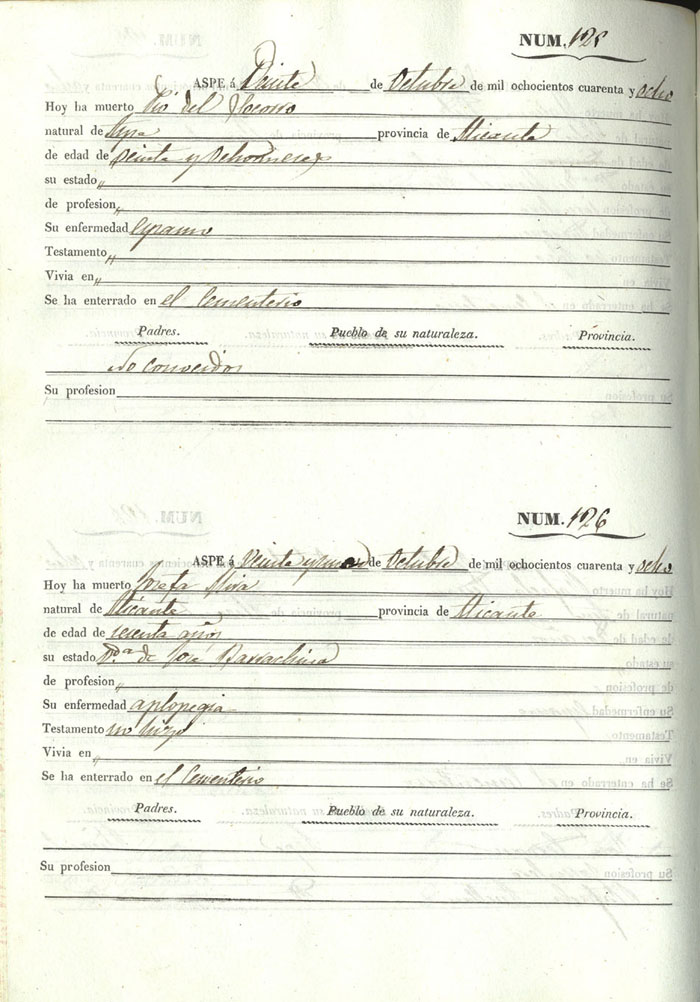 NUM. 125
ASPE á Veinte de Octubre de mil ochocientos cuarenta y ocho
Hoy ha muerto Pio del Socorro
natural de Aspe provincia de Alicante
de edad de veinte y ocho meses
su estado „
de profesion „
Su enfermedad
Testamento „
Vivia en „
Se ha enterrado en el Cementerio
Padres. Pueblo de su naturaleza. Provincia.
No conocidos
Su profesion
NUM. 126
ASPE á Veinte y uno de Octubre de mil ochocientos cuarenta y ocho
Hoy ha muerto Josefa
natural de Alicante provincia de Alicante
de edad de sesenta años
su estado Vda de José Barrachina
de profesion „
Su enfermedad aplopegia
Testamento no hizo
Vivia en „
Se ha enterrado en el Cementerio
Padres. Pueblo de su naturaleza. Provincia.
Su profesion